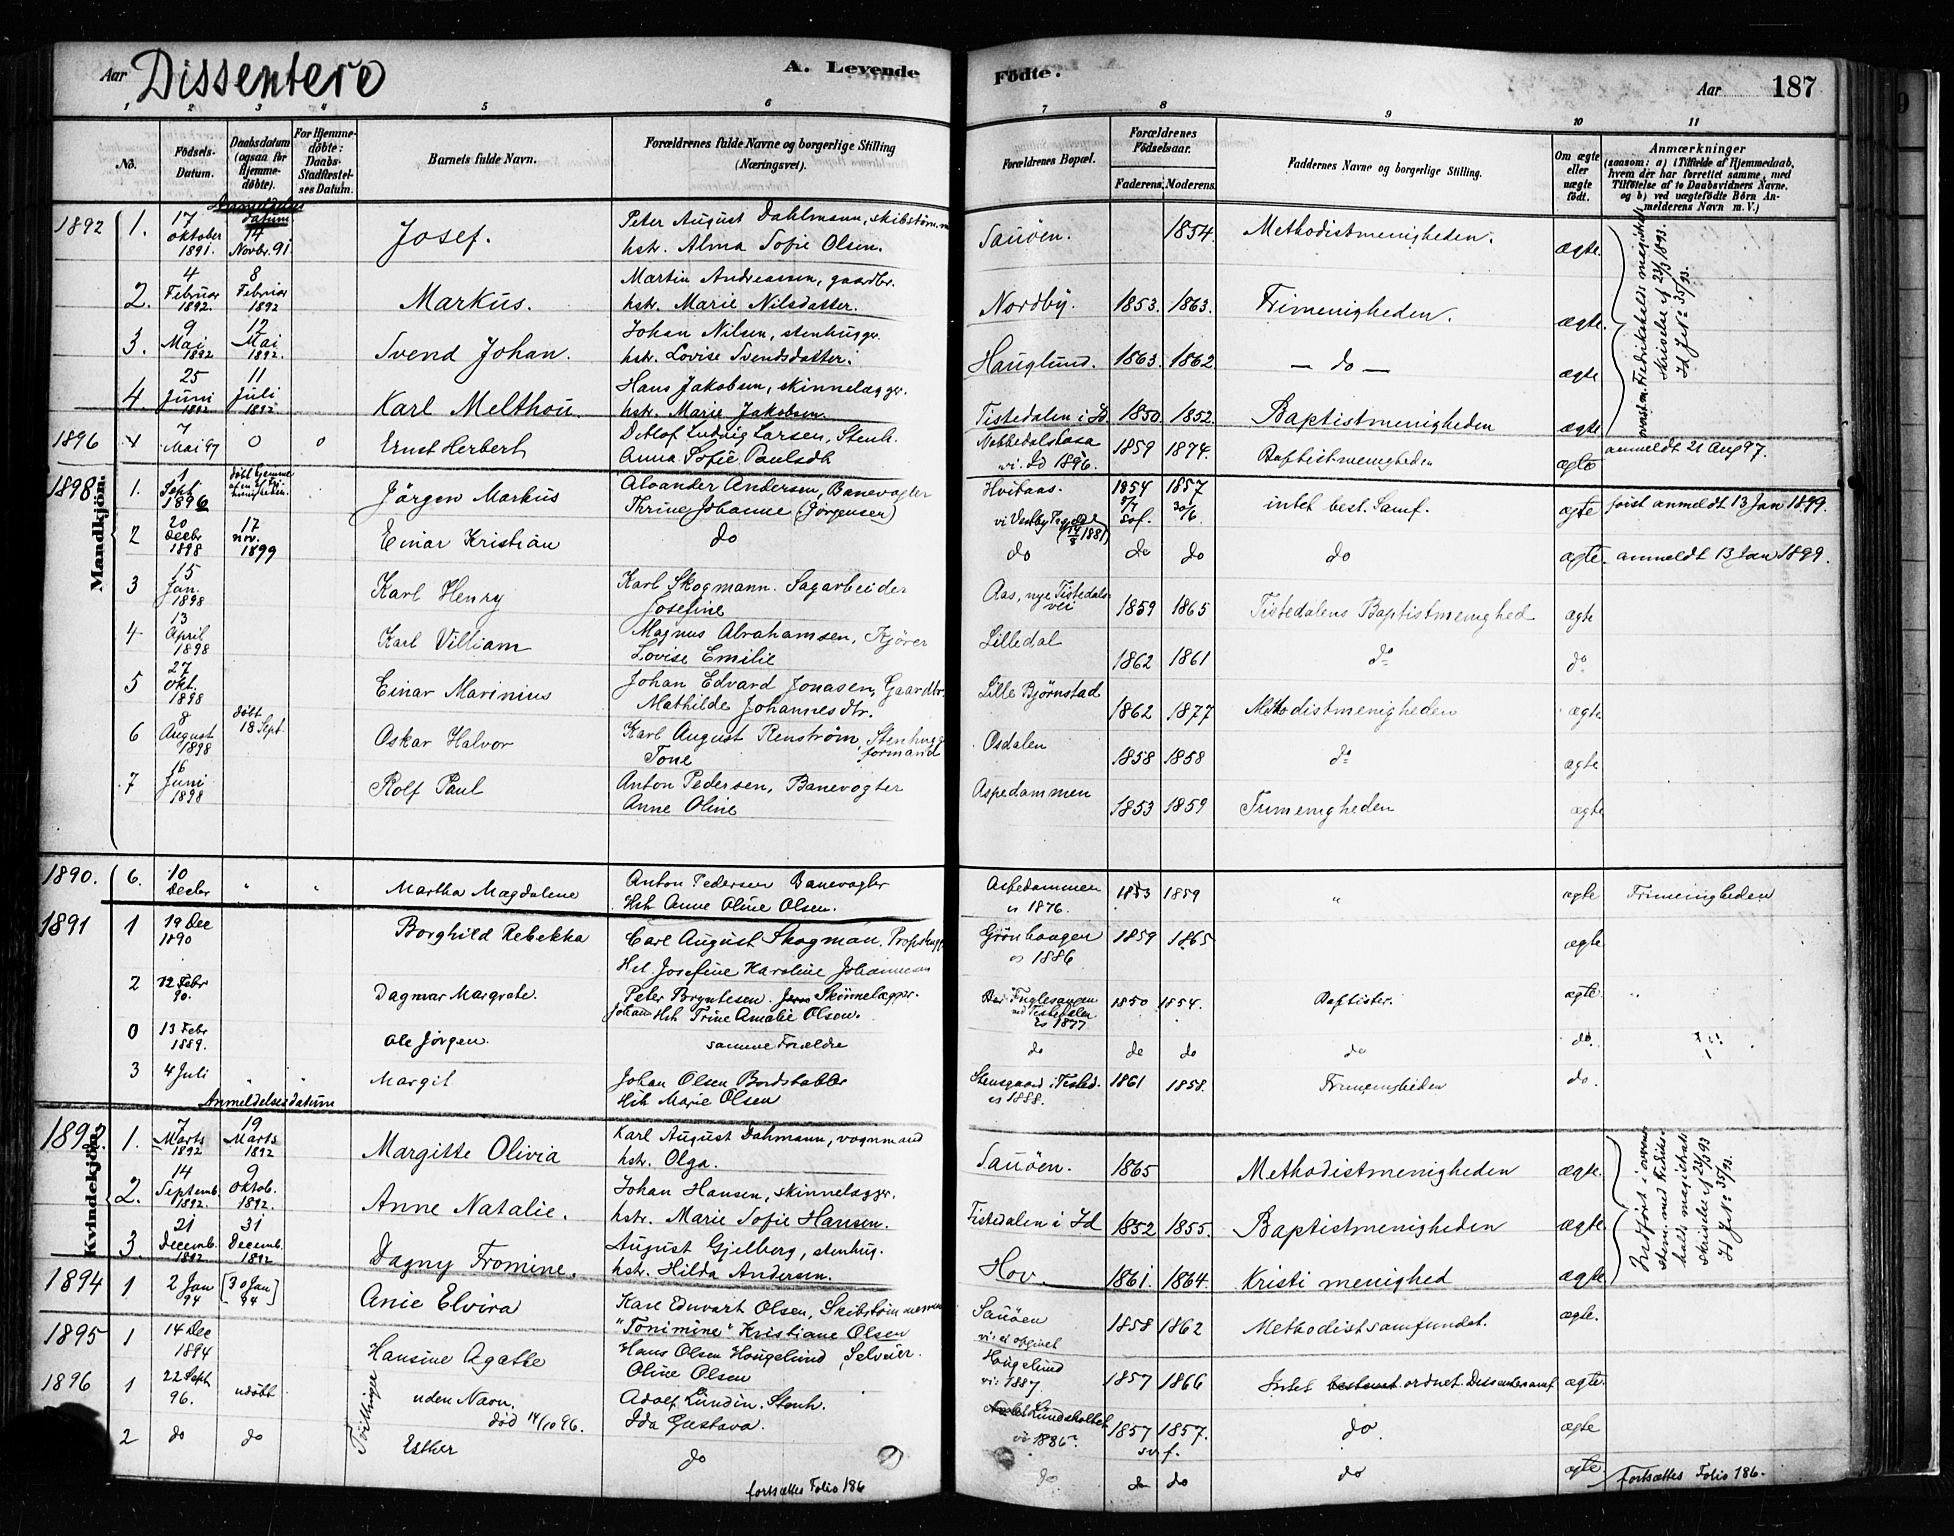 Aar Dissentere A. Levende Fødte. Aar 187
1 2 3 4 5 6 7 8 9 10 11
No. Fødsels-Datum. Daabsdatum (ogsaa for Hjemme-døbte). For Hjemme-døbte: Daabs-Stadfæstel-ses Datum. Barnets fulde Navn. Forældrenes fulde Navne og borgerlige Stilling (Næringsvei). Forældrenes Bopæl. Forældrenes Fødselsaar. Faderens. Moderens. Faddernes Navne og borgerlige Stilling. Om ægte eller uægte født. Anmærkninger (saasom: a) i Tilfælde af Hjemmedaab, hvem der har forrettet samme, med Tilføielse af to Daabsvidners Navne. og b) ved uægtefødte Børn An-melderens Navn m. V.)
Anmeldelses datum
Mandkjøn.
1892 1. 17 Oktober 1891. 14 Novbr. 91. Josef. Peter August Dahlmann, skibstømm.
hstr. Alma Sofie Olsen. Sauøen. 1854. Methodistmenigheden. ægte.
2. 4 Februar 1892. 8 Februar 1892 Markus. Martin Andreassen, gaardbr.
hstr. Marie Nilsdatter. Nordby. 1853. 1863. Frimenigheden. ægte.
3. 9 Mai 1892 12 Mai 1892. Svend Johan. Johan Nilsen, stenhugger
hstr. Lovise Svendsdatter. Hauglund. 1863. 1862 — do — ægte
4. 25 Juni 1892 11 Juli 1892 Karl Melthou. Hans Jakobsen, skinnelægger.
hstr. Marie Jakobsen. Tistedalen i Id 1850 1852. Baptistmenigheden ægte
overstem. Fredrikshalds magistrats skrivelse af 23/3 1893. Id J. No 35/93.
1896 7 Mai 97 0 0 Ernst Herbert Detlof Ludvig Larsen, Stenh.
Anna Sofie Paulsdtr vi. Id 1896. 1859 1874. Baptistmenigheden ægte anmeldt 21 Aug 97.
1898 1. 1 Sept 1896 døbt hjemme Jørgen Markus Alvander Andersen, Banevogter
Thrine Johanne (Jørgensen) Hvitaas. 1854 1857 intet best. Samf. ægte først anmeldt 13 Jan 1899.
2 20 Decbr 1898 17 nov. 1899 Einar Kristian do do do do do ægte. anmeldt 13 Jan 1899.
3 15 Jan. 1898 Karl Henry Karl Skogmann. Sagarbeider
Josefine Aas, nye Tistedals vei 1859 1865 Tistedalens Baptistmenighed ægte
4 13 April 1898 Karl Villiam Magnus Abrahamsen, Kjører
Lovise Emilie Lilledal 1862 1861 do do
5 27 Okt. 1898 Einar Marinius Johan Edvard Jonasen, Gaardbr.
Mathilde Johannesdtr. Lille Bjørnstad 1862 1877 Methodistmenigheden ægte
6 8 August 1898 døbt 18 Sept. Oskar Halvor Karl August Renstrøm, Stenhug. formand
Tone Osdalen 1858 1858 do ægte
7 16 Juni 1898 Rolf Paul Anton Pedersen, Banevogter
Anne Oline Aspedammen 1853 1859 Frimenigheden ægte
Kvindekjøn.
1890. 6. 10 Decbr " " Martha Magdalene Anton Pedersen Banevogter
Hst Anne Oline Olsen. Aspedammen vi 1876. 1853 1859 " ægte Frimenigheden
1891 1 19 Dec 1890 Borghild Rebekka Carl August Skogman, Propshugger
Hst. Josefine Karoline Johannesen Grønhaugen vi 1886 1859 1865 ægte
2 12 Febr 90. Dagmar Margrete. Peter Bryntesen. Skinnelæggr.
Johan Hst Trine Amalie Olsen. Fuglesangen ved Tistedalen vi 1877 1850 1854. Baptister. ægte "
0 13 Febr 1889. Ole Jørgen. samme Forældre do do do do do.
3 4 Juli Margit Johan Olsen Bordstabler
Hst Marie Olsen Stensgaard i Tisted. vi 1888. 1861 1858. Frimenigheden do.
Anmeldelsesdatum
1892. 1. 7 Marts 1892 19 Marts 1892 Margitte Olivia Karl August Dahmann, vognmand
hstr. Olga. Sauøen. 1865 Methodistmenigheden ægte.
2. 14 Septemb. 1892. 9 Oktob. 1892. Anne Natalie. Johan Hansen, skinnelæggr.
hstr. Marie Sofie Hansen. Tistedalen i Id 1852 1855. Baptistmenigheden ægte.
3. 21 Decemb. 1892 31 Decemb. 1892 Dagny Fromine. August Gjelberg, stenhug.
hstr. Hilda Andersen. Hov. 1861. 1864. Kristi menighed ægte.
Indført i overensstem. med Fredrikshalds magistrats skrivelse af 23/3 1893 Id J. No 35/93.
1894 1 2 Jan 94 [30 Jan 94] Anie Elvira Karl Eduvart Olsen, Skibstømmermand
"Tonimine" Kristiane Olsen Sauøen vi: ei opgivet 1858 1862 Methodistsamfundet. ægte.
1895 1 14 Dec 1894 Hansine Agathe Hans Olsen Hougelund, Selveier.
Oline Olsen Hougelund vi: 1887. 1857 1866 Intet bestemt ordnet Dissentersamf ægte.
1896 1 22 Sept 96. udøbt Tvillinger uden Navn. død 14/10 96. Adolf Lundin, Stenh.
Ida Gustava. Lundeholtet vi 1886. 1857 1857. sv. f. do. ægte
2 do do Esther do do do do do ægte.
fortsættes Folio 186 fortsættes Folio 186.